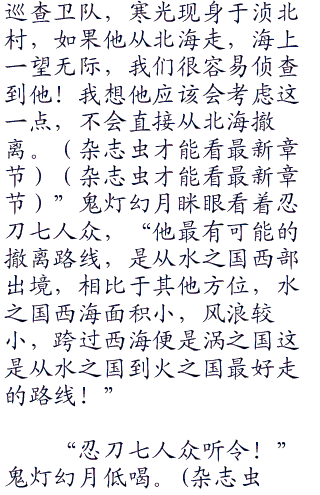 巡查卫队，寒光现身于浈北
村，如果他从北海走，海上
一望无际，我们很容易侦查
到他！我想他应该会考虑这
一点，不会直接从北海撤
离。（杂志虫才能看最新章
节）（杂志虫才能看最新章
节）”鬼灯幻月眯眼看着忍
刀七人众，“他最有可能的
撤离路线，是从水之国西部
出境，相比于其他方位，水
之国西海面积小，风浪较
小，跨过西海便是涡之国这
是从水之国到火之国最好走
的路线！”
“忍刀七人众听令！”
鬼灯幻月低喝。（杂志虫